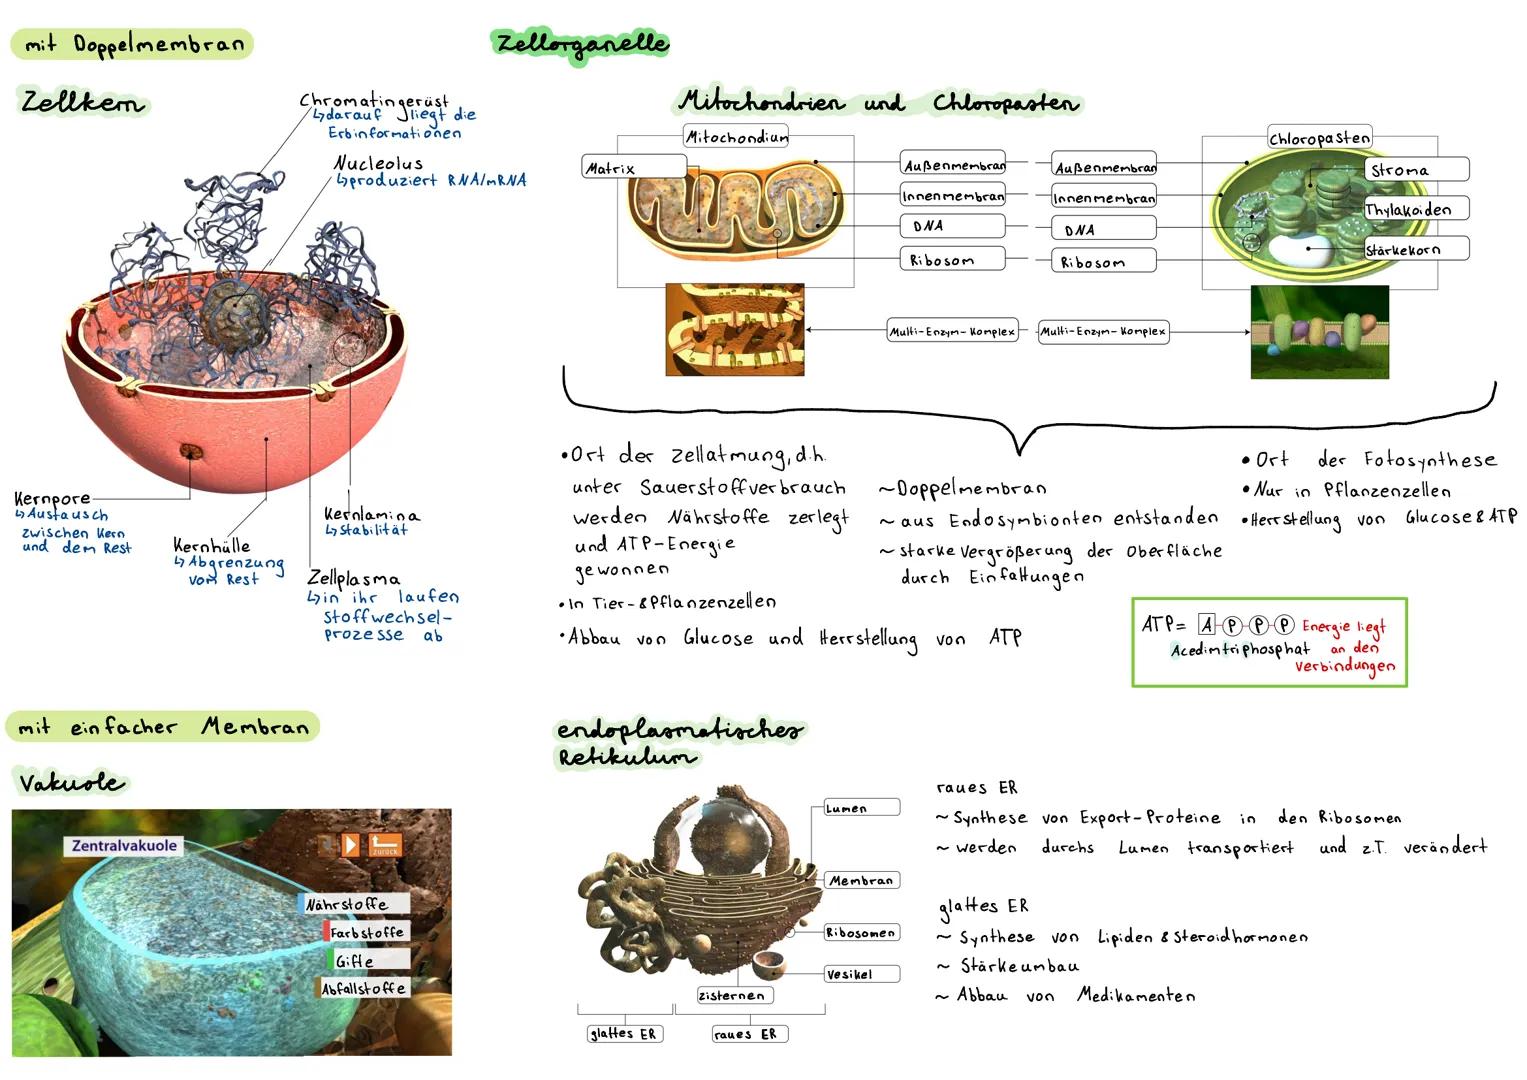 mit Doppelmembran
Zellorganelle
Zellkern
Chromatingerüst
↳darauf liegt die
Erbinformationen
Nucleolus
↳produziert RNA/mRNA
Kernpore
↳Austausch
zwischen Kern
und dem Rest
Kernhülle
↳Abgrenzung
vom Rest
Kernlamina
↳Stabilität
Zellplasma
↳in ihr laufen
Stoffwechsel-
prozesse ab
Mitochondrien und Chloropasten
Mitochondium
Matrix
Außenmembran
Innenmembran
DNA
Ribosom
Multi-Enzym-Komplex
Chloropasten
Außenmembran
Innenmembran
DNA
Ribosom
Multi-Enzym-Komplex
Stroma
Thylakoiden
Stärkekorn
•Ort der Zellatmung, d.h.
unter Sauerstoffverbrauch
werden Nährstoffe zerlegt
und ATP-Energie
gewonnen
•In Tier-&Pflanzenzellen
•Abbau von Glucose und Herrstellung von ATP
~Doppelmembran
~aus Endosymbionten entstanden
~starke Vergrößerung der Oberfläche
durch Einfaltungen
•Ort der Fotosynthese
•Nur in Pflanzenzellen
•Herrstellung von Glucose&ATP
ATP= A-P-P-P Energie liegt
Acedimtriphosphat an den
Verbindungen
mit einfacher Membran
Vakuole
Zentralvakuole
zurück
Nährstoffe
Farbstoffe
Gifte
Abfallstoffe
endoplasmatisches
Retikulum
Lumen
Membran
Ribosomen
Vesikel
Zisternen
glattes ER
raues ER
raues ER
~Synthese von Export-Proteine in den Ribosomen
~werden durchs Lumen transportiert und z.T. verändert
glattes ER
~Synthese von Lipiden & Steroidhormonen
~Stärkeumbau
~Abbau von Medikamenten